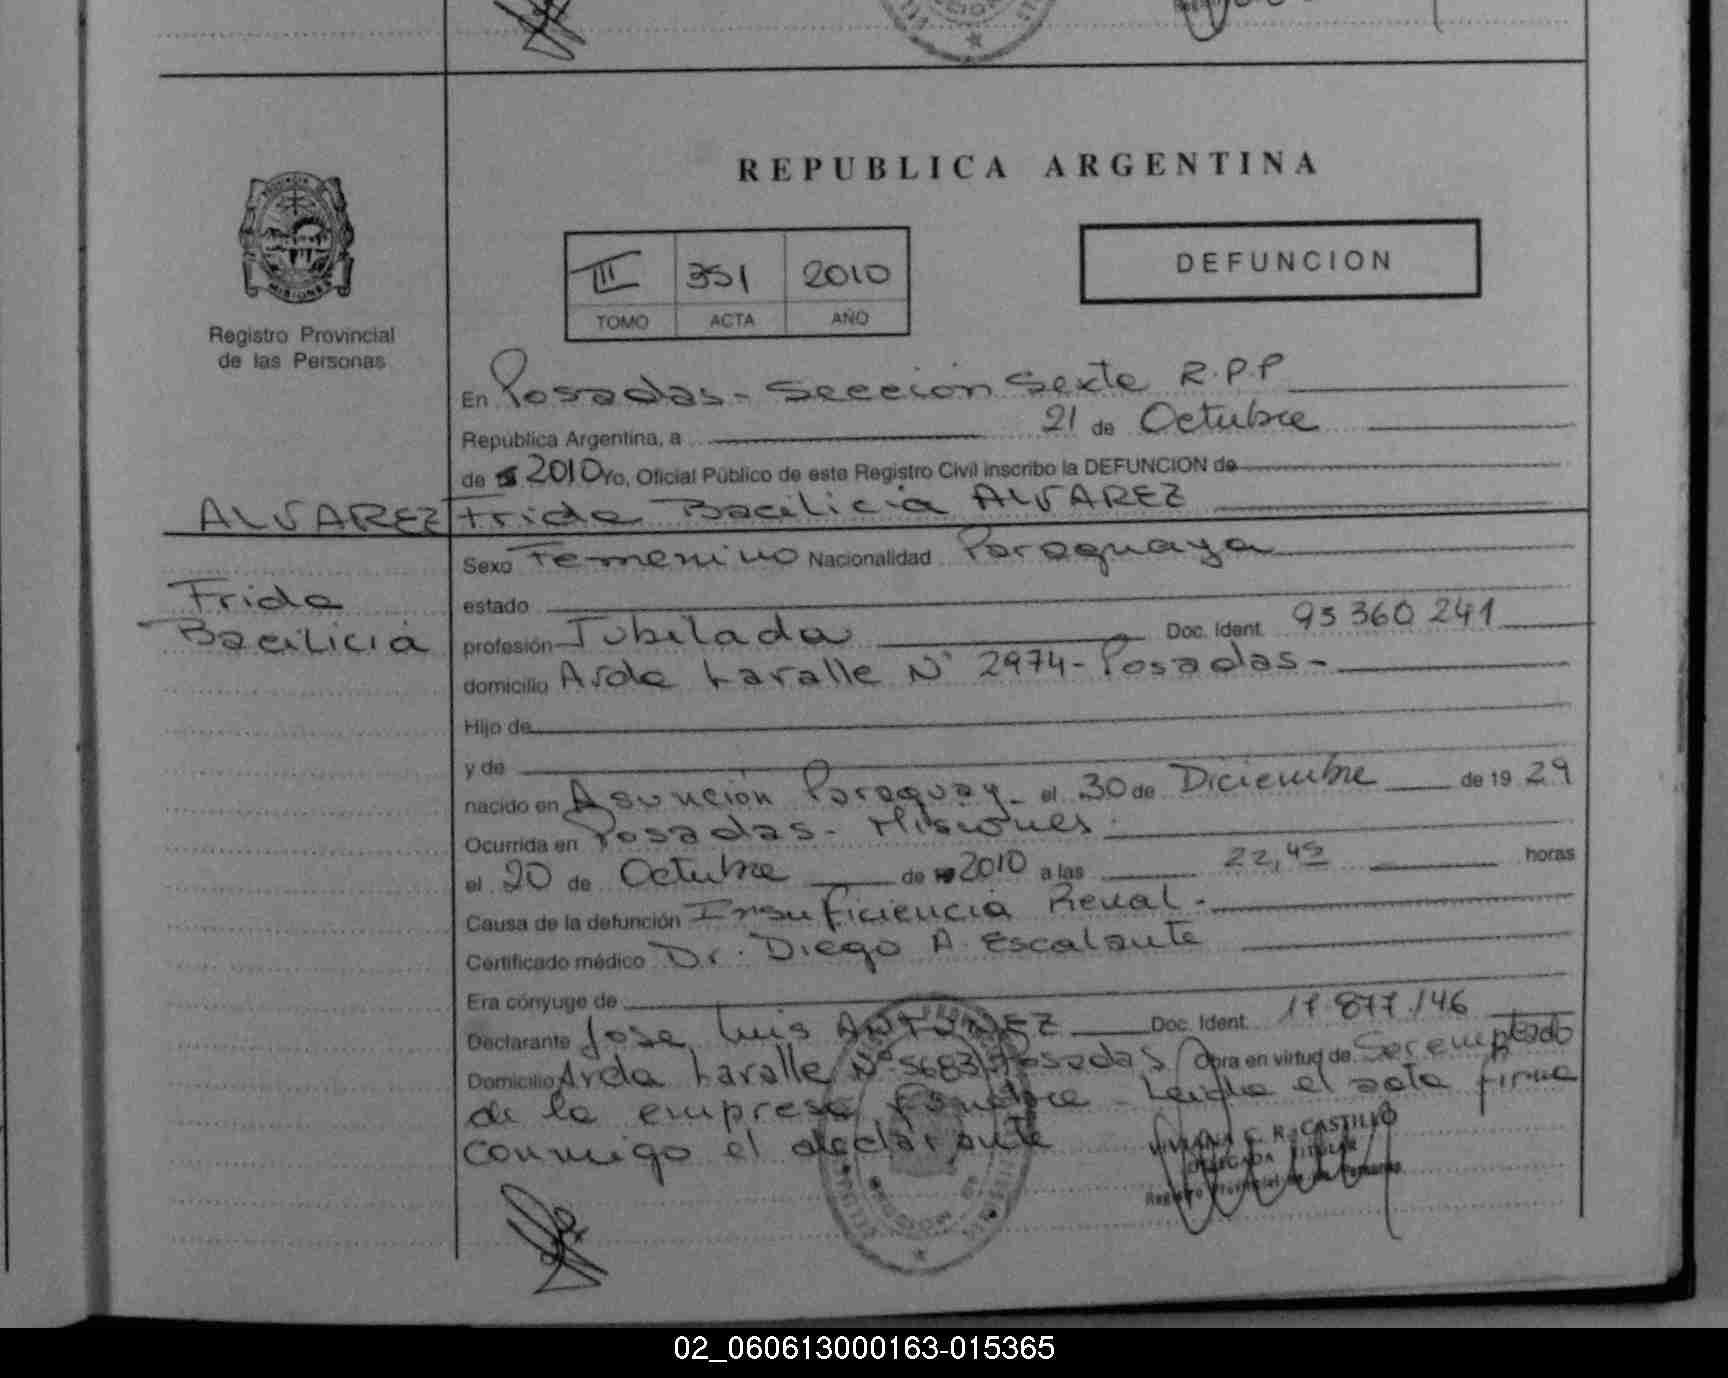 REPUBLICA ARGENTINA
III 351 2010
TOMO ACTA AÑO
DEFUNCION
PROVINCIA DE
MISIONES
Registro Provincial
de las Personas
En Posadas - Sección Sexta R.P.P
República Argentina, a 21 de Octubre
de 2010 Yo, Oficial Público de este Registro Civil inscribo la DEFUNCION de
ALVAREZ Frida Bacilicia ALVAREZ
Frida
Bacilicia
Sexo Femenino Nacionalidad Paraguaya
estado
profesión Jubilada Doc. Ident. 95 360 241
domicilio Avda Lavalle N° 2974 - Posadas -
Hijo de
y de
nacido en Asunción Paraguay - el 30 de Diciembre de 19 29
Ocurrida en Posadas - Misiones
el 20 de Octubre de 2010 a las 22,45 horas
Causa de la defunción Insuficiencia Renal -
Certificado médico Dr. Diego A. Escalante
Era cónyuge de
Declarante Jose Luis ANTUNEZ Doc. Ident. 17 877.146
Domicilio Avda Lavalle N° 5683 Posadas Obra en virtud de Ser empleado
de la empresa fúnebre - Leída el acta firma
conmigo el declarante
VIVIANA C. R. CASTILLO
DELEGADA TITULAR
Registro Provincial de las Personas
02_060613000163-015365